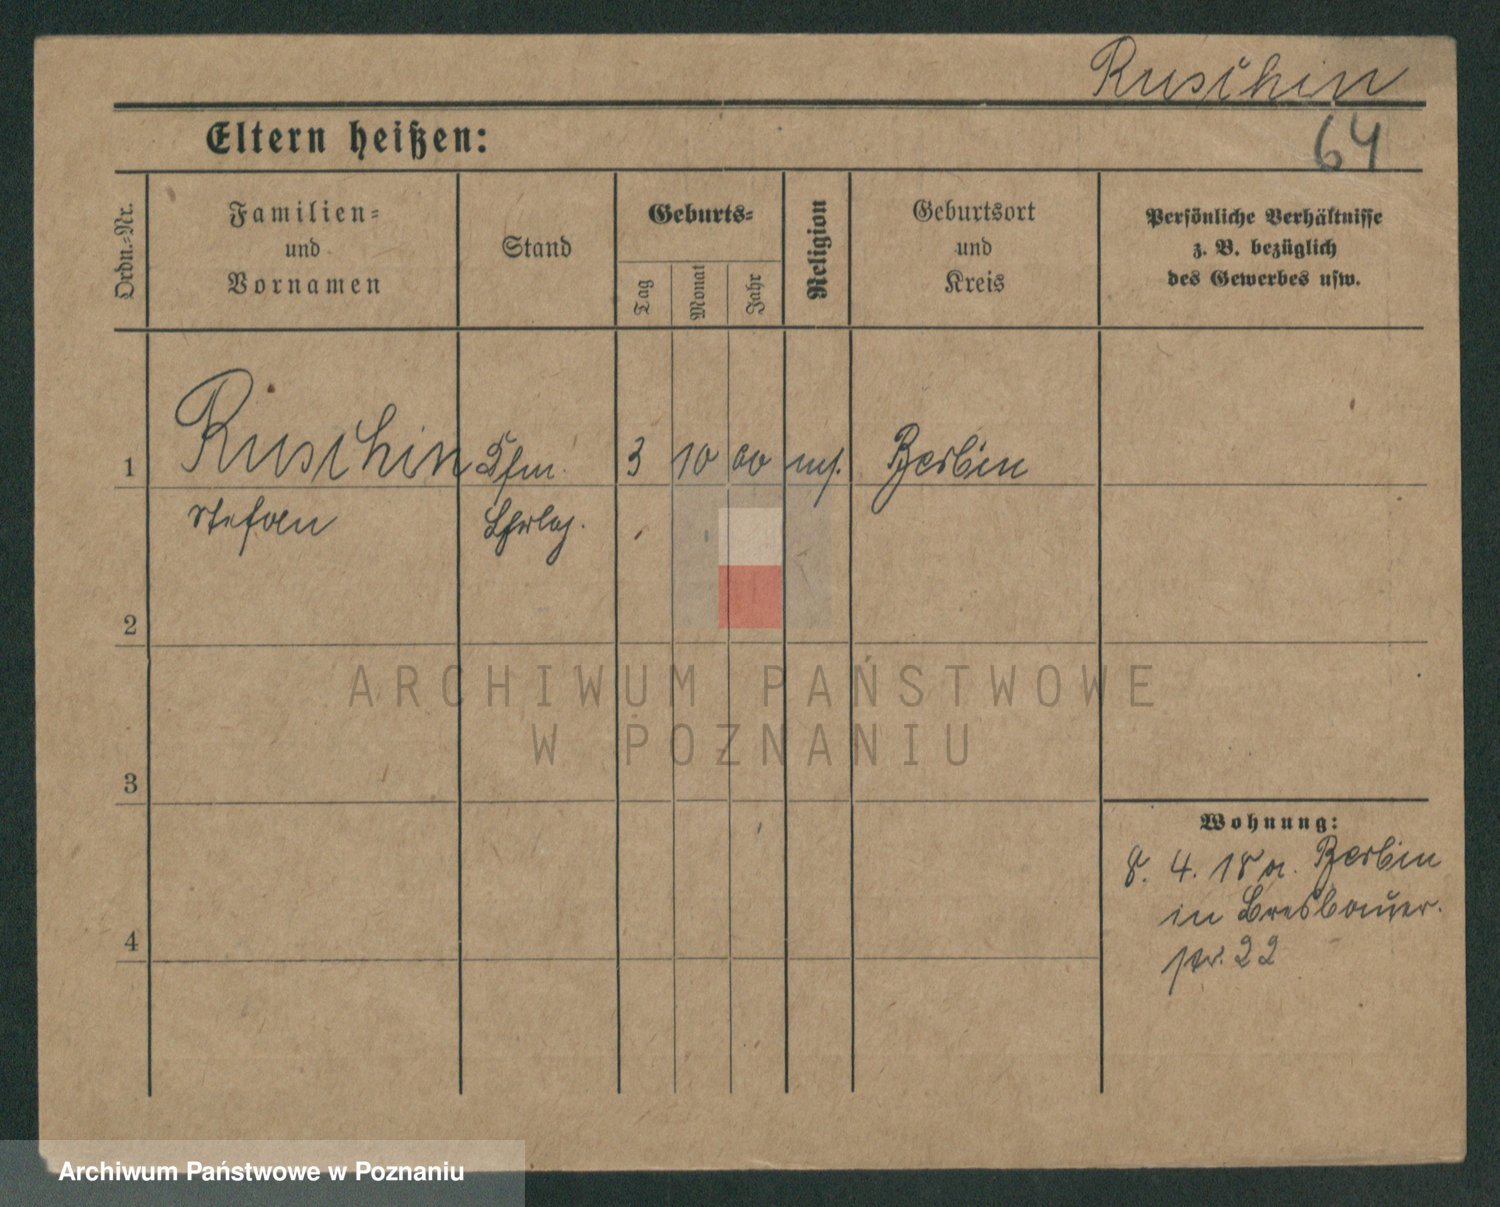 Ruschin
64
Eltern heißen:
Ordn.-Nr.
Familien-
und
Vornamen
Stand
Geburts-
Tag
Monat
Jahr
Religion
Geburtsort
und
Kreis
Persönliche Verhältnisse
z. B. bezüglich
des Gewerbes usw.
1 Ruschin Kfm. 3 10 00 Berlin
Stefan Lehrlg.
2
ARCHIWUM PAŃSTWOWE
W POZNANIU
3
Wohnung:
8. 4. 18 n. Berlin
in
str. 22
4
Archiwum Państwowe w Poznaniu